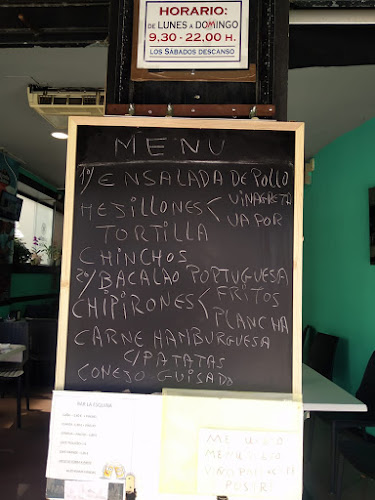 HORARIO:
DE LUNES A DOMINGO
9,30 - 22,00 H.
LOS SÁBADOS DESCANSO
MENU
1º/ ENSALADA DE POLLO
MEJILLONES < VINAGRETA
VAPOR
TORTILLA
CHINCHOS
2º/ BACALAO PORTUGUESA
CHIPIRONES < FRITOS
PLANCHA
CARNE HAMBURGUESA
C/PATATAS
CONEJO GUISADO